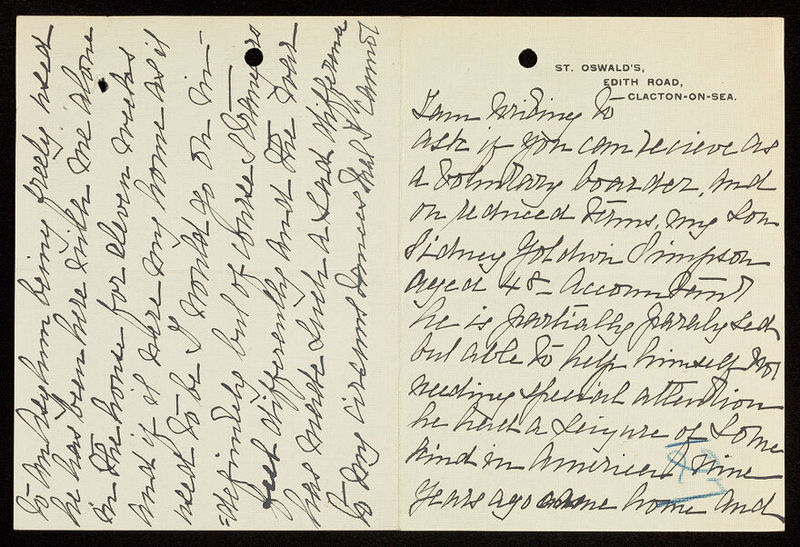 ST. OSWALD'S,
EDITH ROAD,
CLACTON-ON-SEA.
I am writing to
ask if you can recieve as
a voluntary boarder, and
on reduced terms, my son
Sidney Goldwin Simpson
aged 48 - accountant
he is partially paralysed
but able to help himself not
needing special attention
he had a seizure of some
kind in America nine
years ago came home and
to an asylum being freely used
he has been here with me alone
in the house for eleven weeks
and if it were my home as it
used to be I would go on in-
=definitely but of course strangers
feel differently and the war
has made such a sad difference
to my circumstances that I cannot